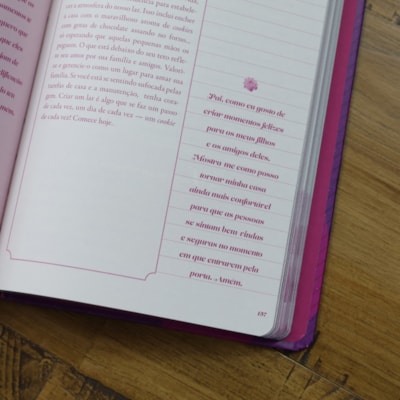 ra atmosfera do nosso lar. Isso inclui encher
a casa com o maravilhoso aroma de cookies
com gotas de chocolate assando no forno,
só esperando que aquelas pequenas mãos os
peguem. O que está debaixo do seu teto refle-
te seu amor por sua família e amigos. Valori-
ze e gerencie-o como um lugar para amar sua
família. Se você está se sentindo sufocada pelas
tarefas de casa e a manutenção, tenha cora-
gem. Criar um lar é algo que se faz um passo
de cada vez, um dia de cada vez — um cookie
de cada vez! Comece hoje.
Pai, como eu gosto de
criar momentos felizes
para os meus filhos
e os amigos deles.
Mostra-me como posso
tornar minha casa
ainda mais confortável
para que as pessoas
se sintam bem-vindas
e seguras no momento
em que entrarem pela
porta. Amém.
157